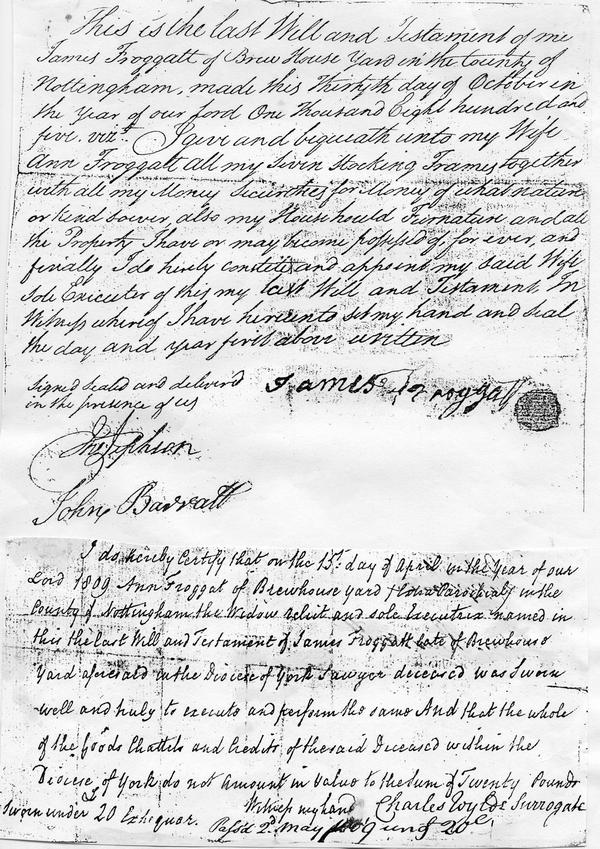 This is the last Will and Testament of me
James Froggatt of Brew House Yard in the County of
Nottingham, made this Thirtyth day of October in
the Year of our Lord One Thousand Eight hundred and
five. vizt. I give and bequeath unto my Wife
Ann Froggatt all my Seven Stocking Frames together
with all my Money Securities for Money of what nature
or kind soever, also my Household Furnature and all
the Property I have or may become possessed of, for ever, and
finially I do hereby constitute and appoint my said Wife
Sole Executer of this my last Will and Testament In
Witness whereof I have hereunto set my hand and seal
the day and year first above written
Signed sealed and deliverd
in the presence of us
James Froggatt
Jephson
John Barratt
I do hereby Certify that on the 15th. day of April in the Year of our
Lord 1809 Ann Froggat of Brewhouse Yard (Extra Parochial) in the
County of Nottingham the Widow relict and sole Executrix named in
this the last Will and Testament of James Froggatt late of Brewhouse
Yard aforesaid in the Diocese of York Sawyer deceased was Sworn
well and truly to execute and perform the same And that the whole
of the Goods Chattels and Credits of the said Deceased within the
Diocese of York do not Amount in Value to the Sum of Twenty Pounds
Witness my hand Charles Wylde Surrogate
Sworn under 20 Exhequar.
Pass'd 2d. May 1809 und 20£